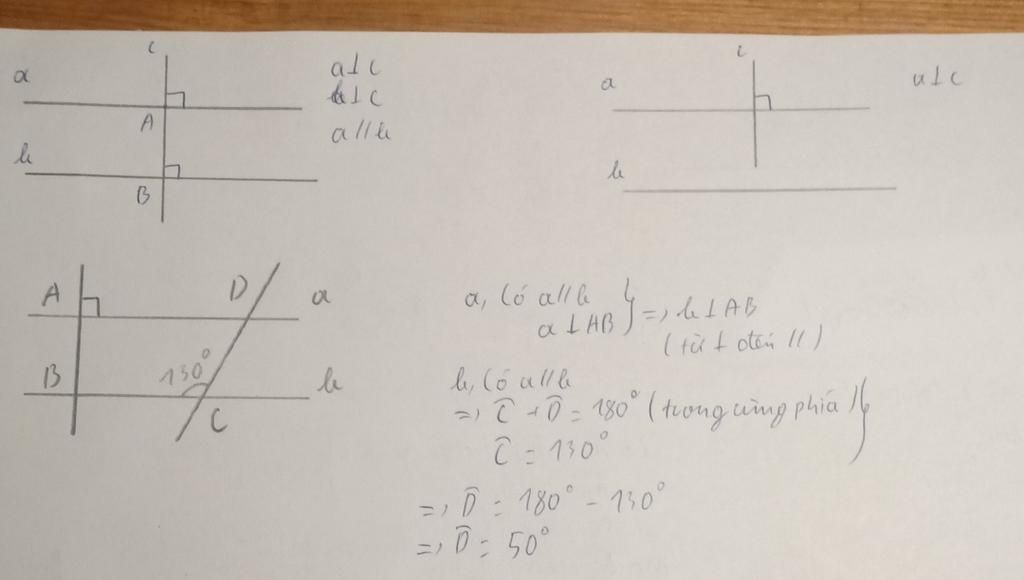 c
a
a⊥c
b⊥c
a//b
A
b
B
c
a
a⊥c
b
A
D
a
B
130°
b
C
a, Có a//b
a⊥AB } =, b⊥AB
(từ ⊥ đến //)
b, Có a//b
=, Ĉ + D̂ = 180° (trong cùng phía) }
Ĉ = 130°
=, D̂ = 180° - 130°
=, D̂ = 50°